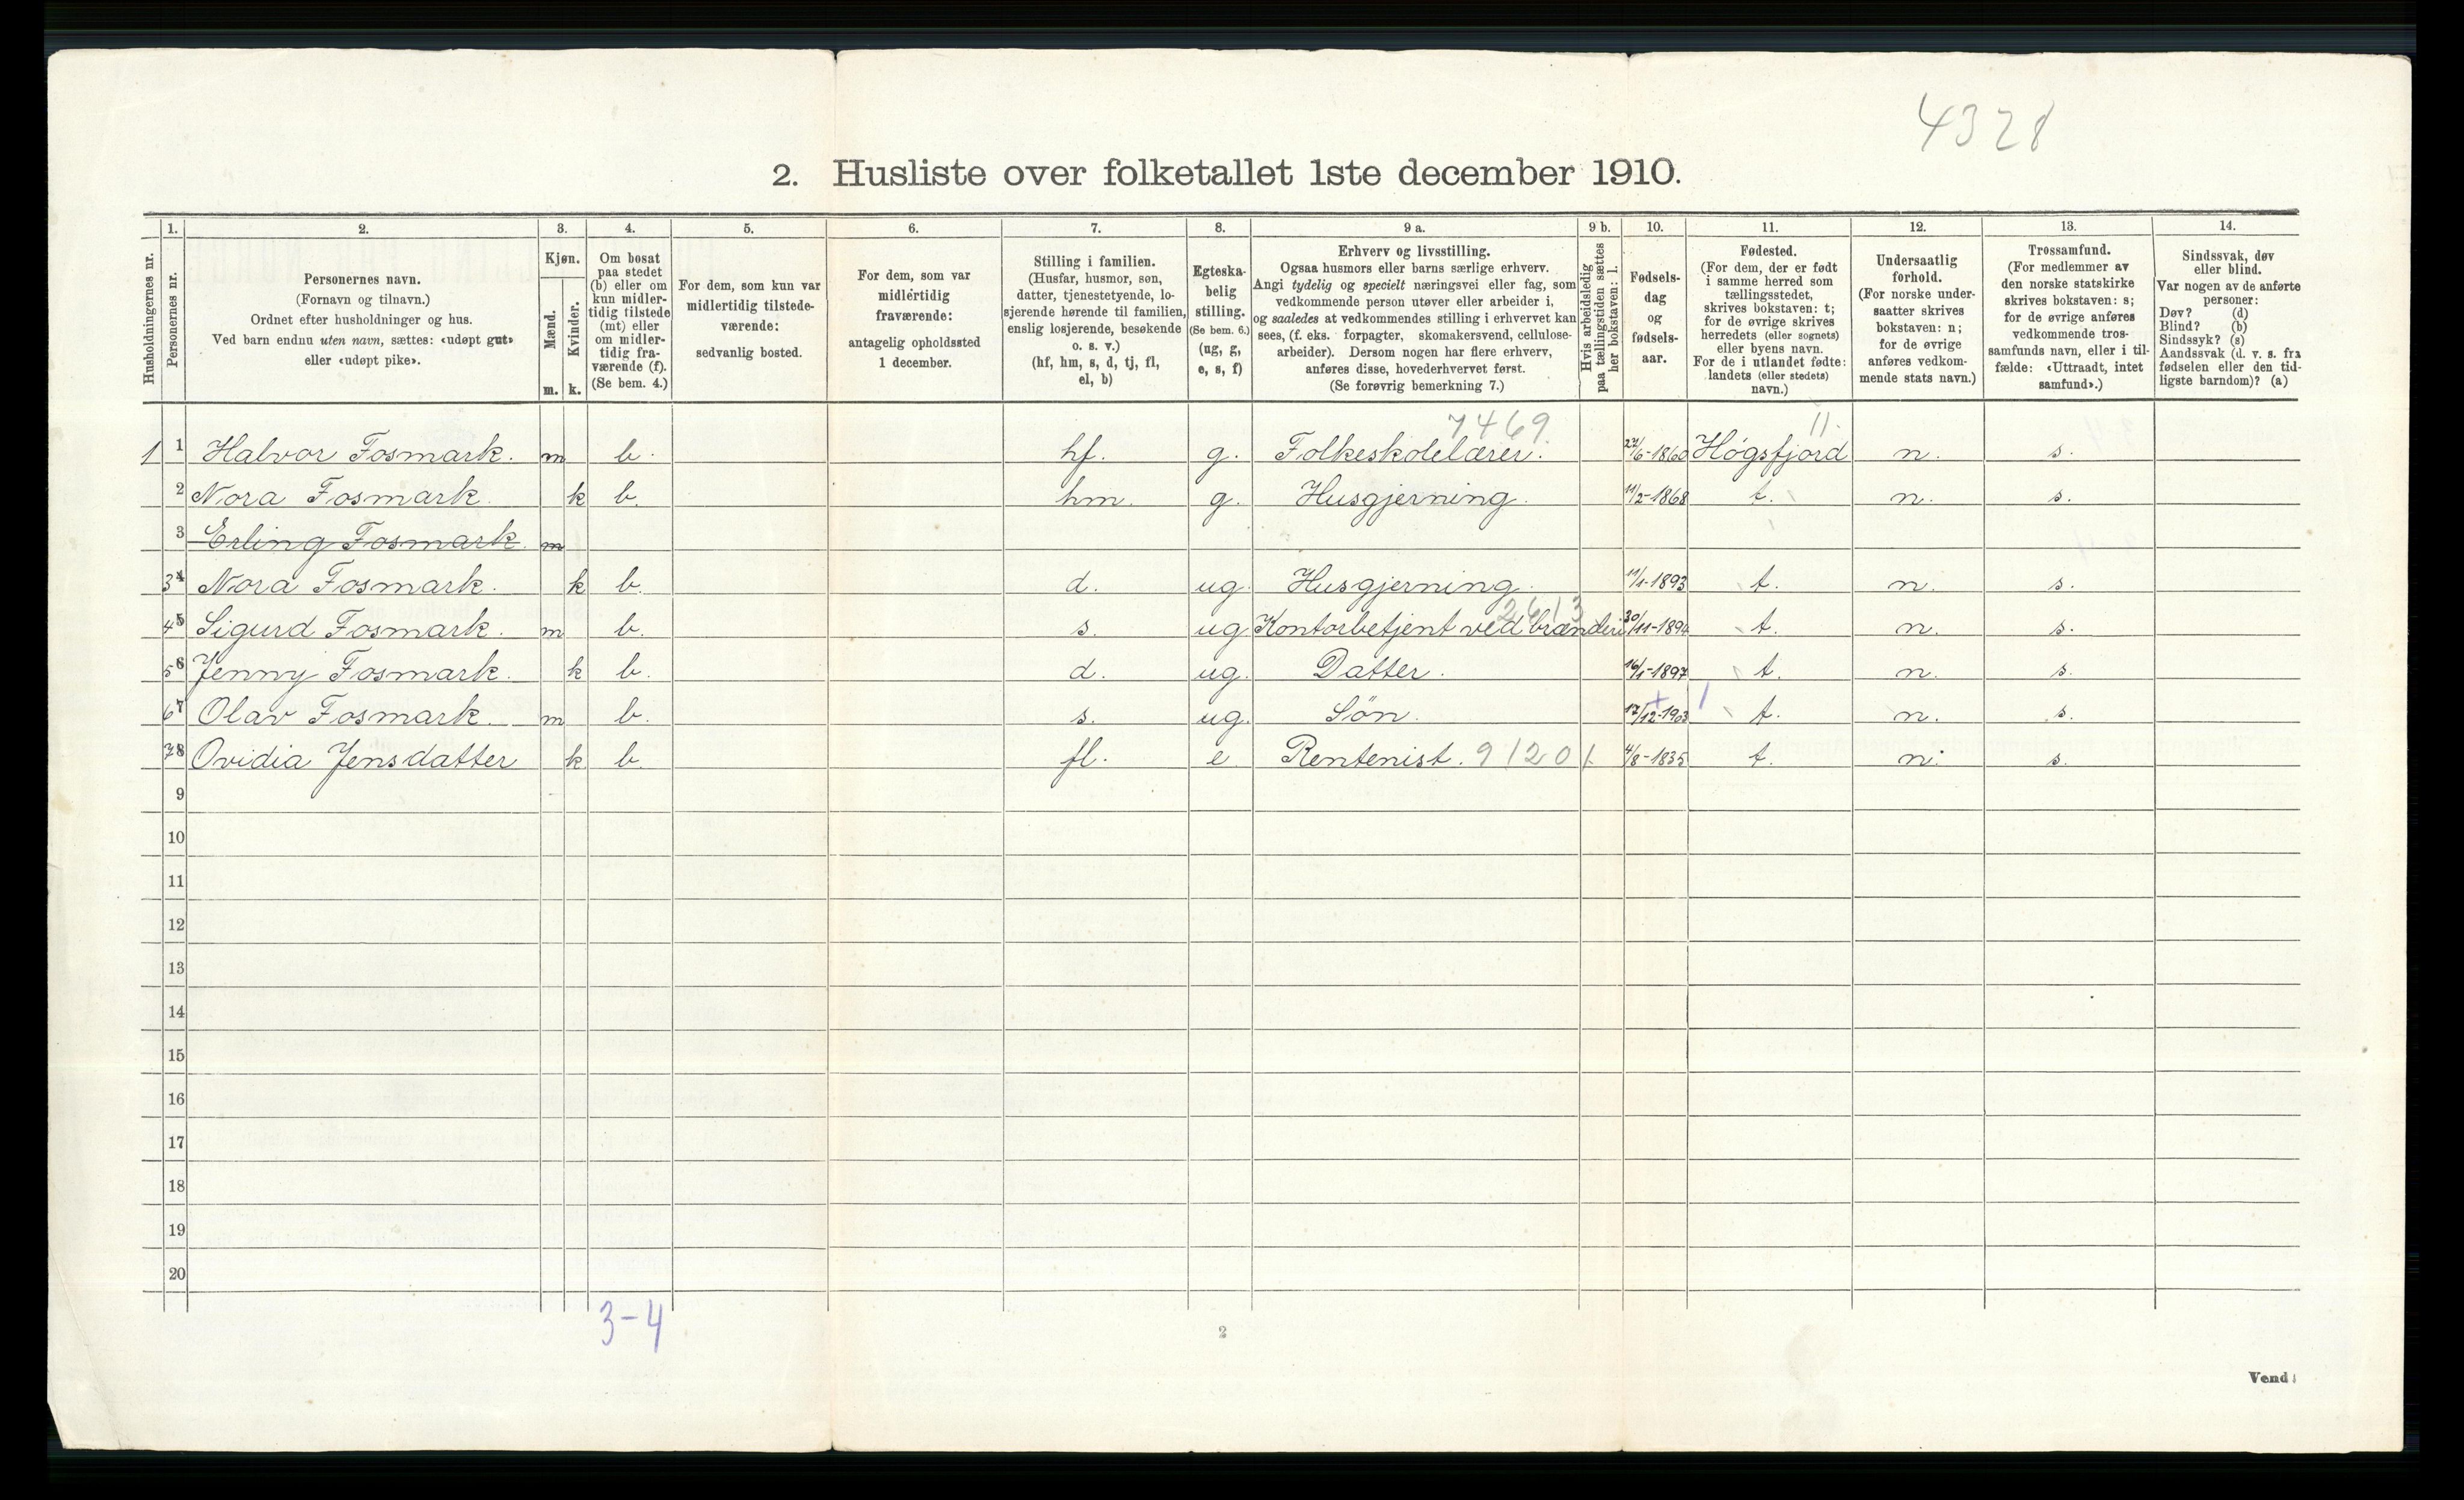 4328
2. Husliste over folketallet 1ste december 1910.
1. 2. 3. 4. 5. 6. 7. 8. 9 a. 9 b. 10. 11. 12. 13. 14.
Husholdningernes nr.
Personernes nr.
Personernes navn.
(Fornavn og tilnavn.)
Ordnet efter husholdninger og hus.
Ved barn endnu uten navn, sættes: «udøpt gut»
eller «udøpt pike».
Kjøn.
Mænd.
Kvinder.
m. k.
Om bosat
paa stedet
(b) eller om
kun midler-
tidig tilstede
(mt) eller
om midler-
tidig fra-
værende (f).
(Se bem. 4.)
For dem, som kun var
midlertidig tilstede-
værende:
sedvanlig bosted.
For dem, som var
midlertidig
fraværende:
antagelig opholdssted
1 december.
Stilling i familien.
(Husfar, husmor, søn,
datter, tjenestetyende, lo-
sjerende hørende til familien,
enslig losjerende, besøkende
o. s. v.)
(hf, hm, s, d, tj, fl,
el, b)
Egteska-
belig
stilling.
(Se bem. 6.)
(ug, g,
e, s, f)
Erhverv og livsstilling.
Ogsaa husmors eller barns særlige erhverv.
Angi tydelig og specielt næringsvei eller fag, som
vedkommende person utøver eller arbeider i,
og saaledes at vedkommendes stilling i erhvervet kan
sees, (f. eks. forpagter, skomakersvend, cellulose-
arbeider). Dersom nogen har flere erhverv,
anføres disse, hovederhvervet først.
(Se forøvrig bemerkning 7.)
Hvis arbeidsledig
paa tællingstiden sættes
her bokstaven: l.
Fødsels-
dag
og
fødsels-
aar.
Fødested.
(For dem, der er født
i samme herred som
tællingsstedet,
skrives bokstaven: t;
for de øvrige skrives
herredets (eller sognets)
eller byens navn.
For de i utlandet fødte:
landets (eller stedets)
navn.)
Undersaatlig
forhold.
(For norske under-
saatter skrives
bokstaven: n;
for de øvrige
anføres vedkom-
mende stats navn.)
Trossamfund.
(For medlemmer av
den norske statskirke
skrives bokstaven: s;
for de øvrige anføres
vedkommende tros-
samfunds navn, eller i til-
fælde: «Uttraadt, intet
samfund».)
Sindssvak, døv
eller blind.
Var nogen av de anførte
personer:
Døv? (d)
Blind? (b)
Sindssyk? (s)
Aandssvak (d. v. s. fra
fødselen eller den tid-
ligste barndom)? (a)
7469. 11.
1 1 Halvor Fosmark. m b. hf. g. Folkeskolelærer. 27/6-1860 Høgsfjord n. s.
2 Nora Fosmark. k b. hm. g. Husgjerning. 11/2-1868 t. n. s.
3 Erling Fosmark. m
3 4 Nora Fosmark. k b. d. ug. Husgjerning. 11/1-1893 t. n. s.
2613
4 5 Sigurd Fosmark. m b. s. ug. Kontorbetjent ved brænderi 30/11-1894 t. n. s.
5 6 Jenny Fosmark. k b. d. ug. Datter. 16/1-1897 t. n. s.
6 7 Olav Fosmark. m b. s. ug. Søn. 17/12-1903 t. n. s.
7 8 Ovidia Jensdatter k b. fl. e Rentenist. 9120 1. 4/8-1835 t. n. s.
9
10
11
12
13
14
15
16
17
18
19
20
3-4
2
Vend